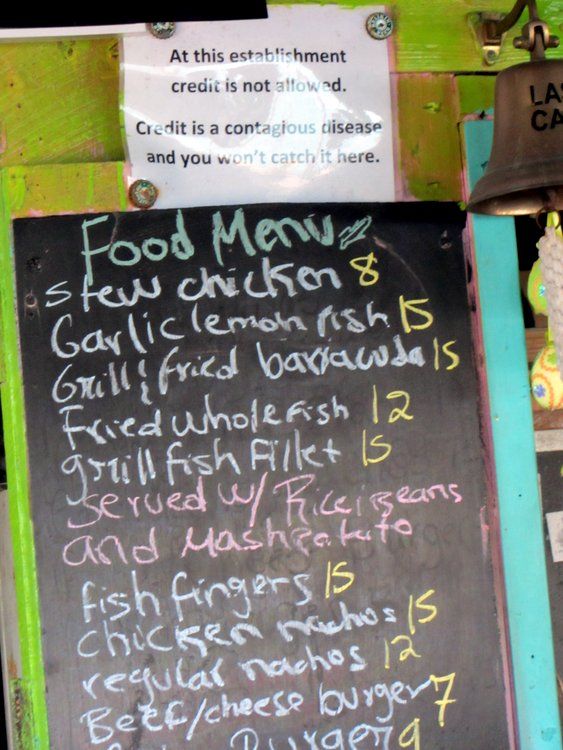 At this establishment
credit is not allowed.
Credit is a contagious disease
and you won't catch it here.
LA
CA
Food Menu
stew chicken 8
Garlic lemon fish 15
Grill & fried barracuda 15
Fried whole fish 12
grill fish fillet 15
served w/ Rice & Beans
and Mash Potato
fish fingers 15
chicken nachos 15
regular nachos 12
Beef/cheese burger 7
Burger 9